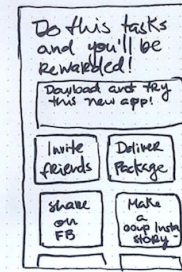 Do this tasks
and you'll be
Rewarded!
Dowload and try
this new app!
Invite
friends
Deliver
Package
share
on
FB
Make
a
Insta
story